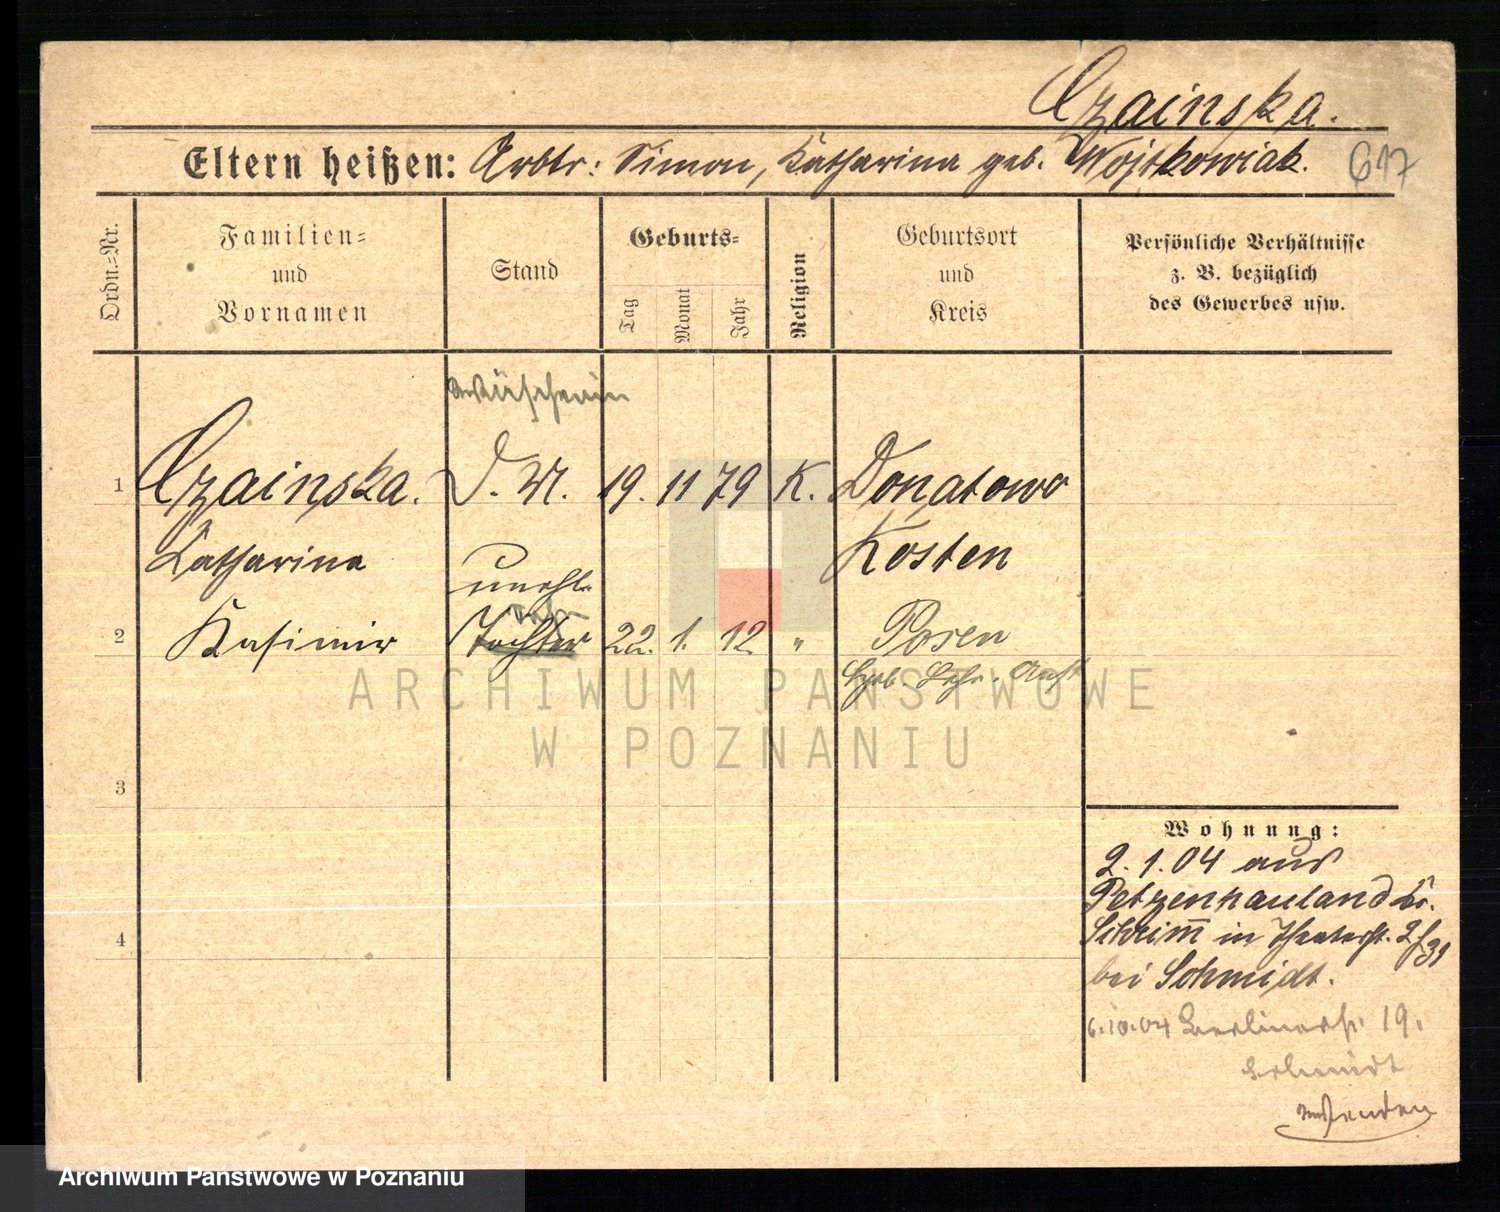 Czainska.
Eltern heißen: Arbtr: Simon, Katharina geb. Wojtkowiak. 617
Ordn.-Nr.
Familien-
und
Vornamen
Stand
Geburts-
Tag
Monat
Jahr
Religion
Geburtsort
und
Kreis
Persönliche Verhältnisse
z. B. bezüglich
des Gewerbes usw.
Wäscherin
1 Czainska. D. M. 19. 11 79 K. Donatowo
Katharina Kosten
unehl.
2 Kasimir Tochter 22. 1. 12. " Posen
Heb. Lehr. Anst
3
4
Wohnung:
2. 1. 04 aus
Petzenhauland Kr.
Schrimm in Theaterst. 2
bei Schmidt.
6.10.04 Berlinerstr. 19.
Schmidt
ARCHIWUM PAŃSTWOWE
W POZNANIU
Archiwum Państwowe w Poznaniu